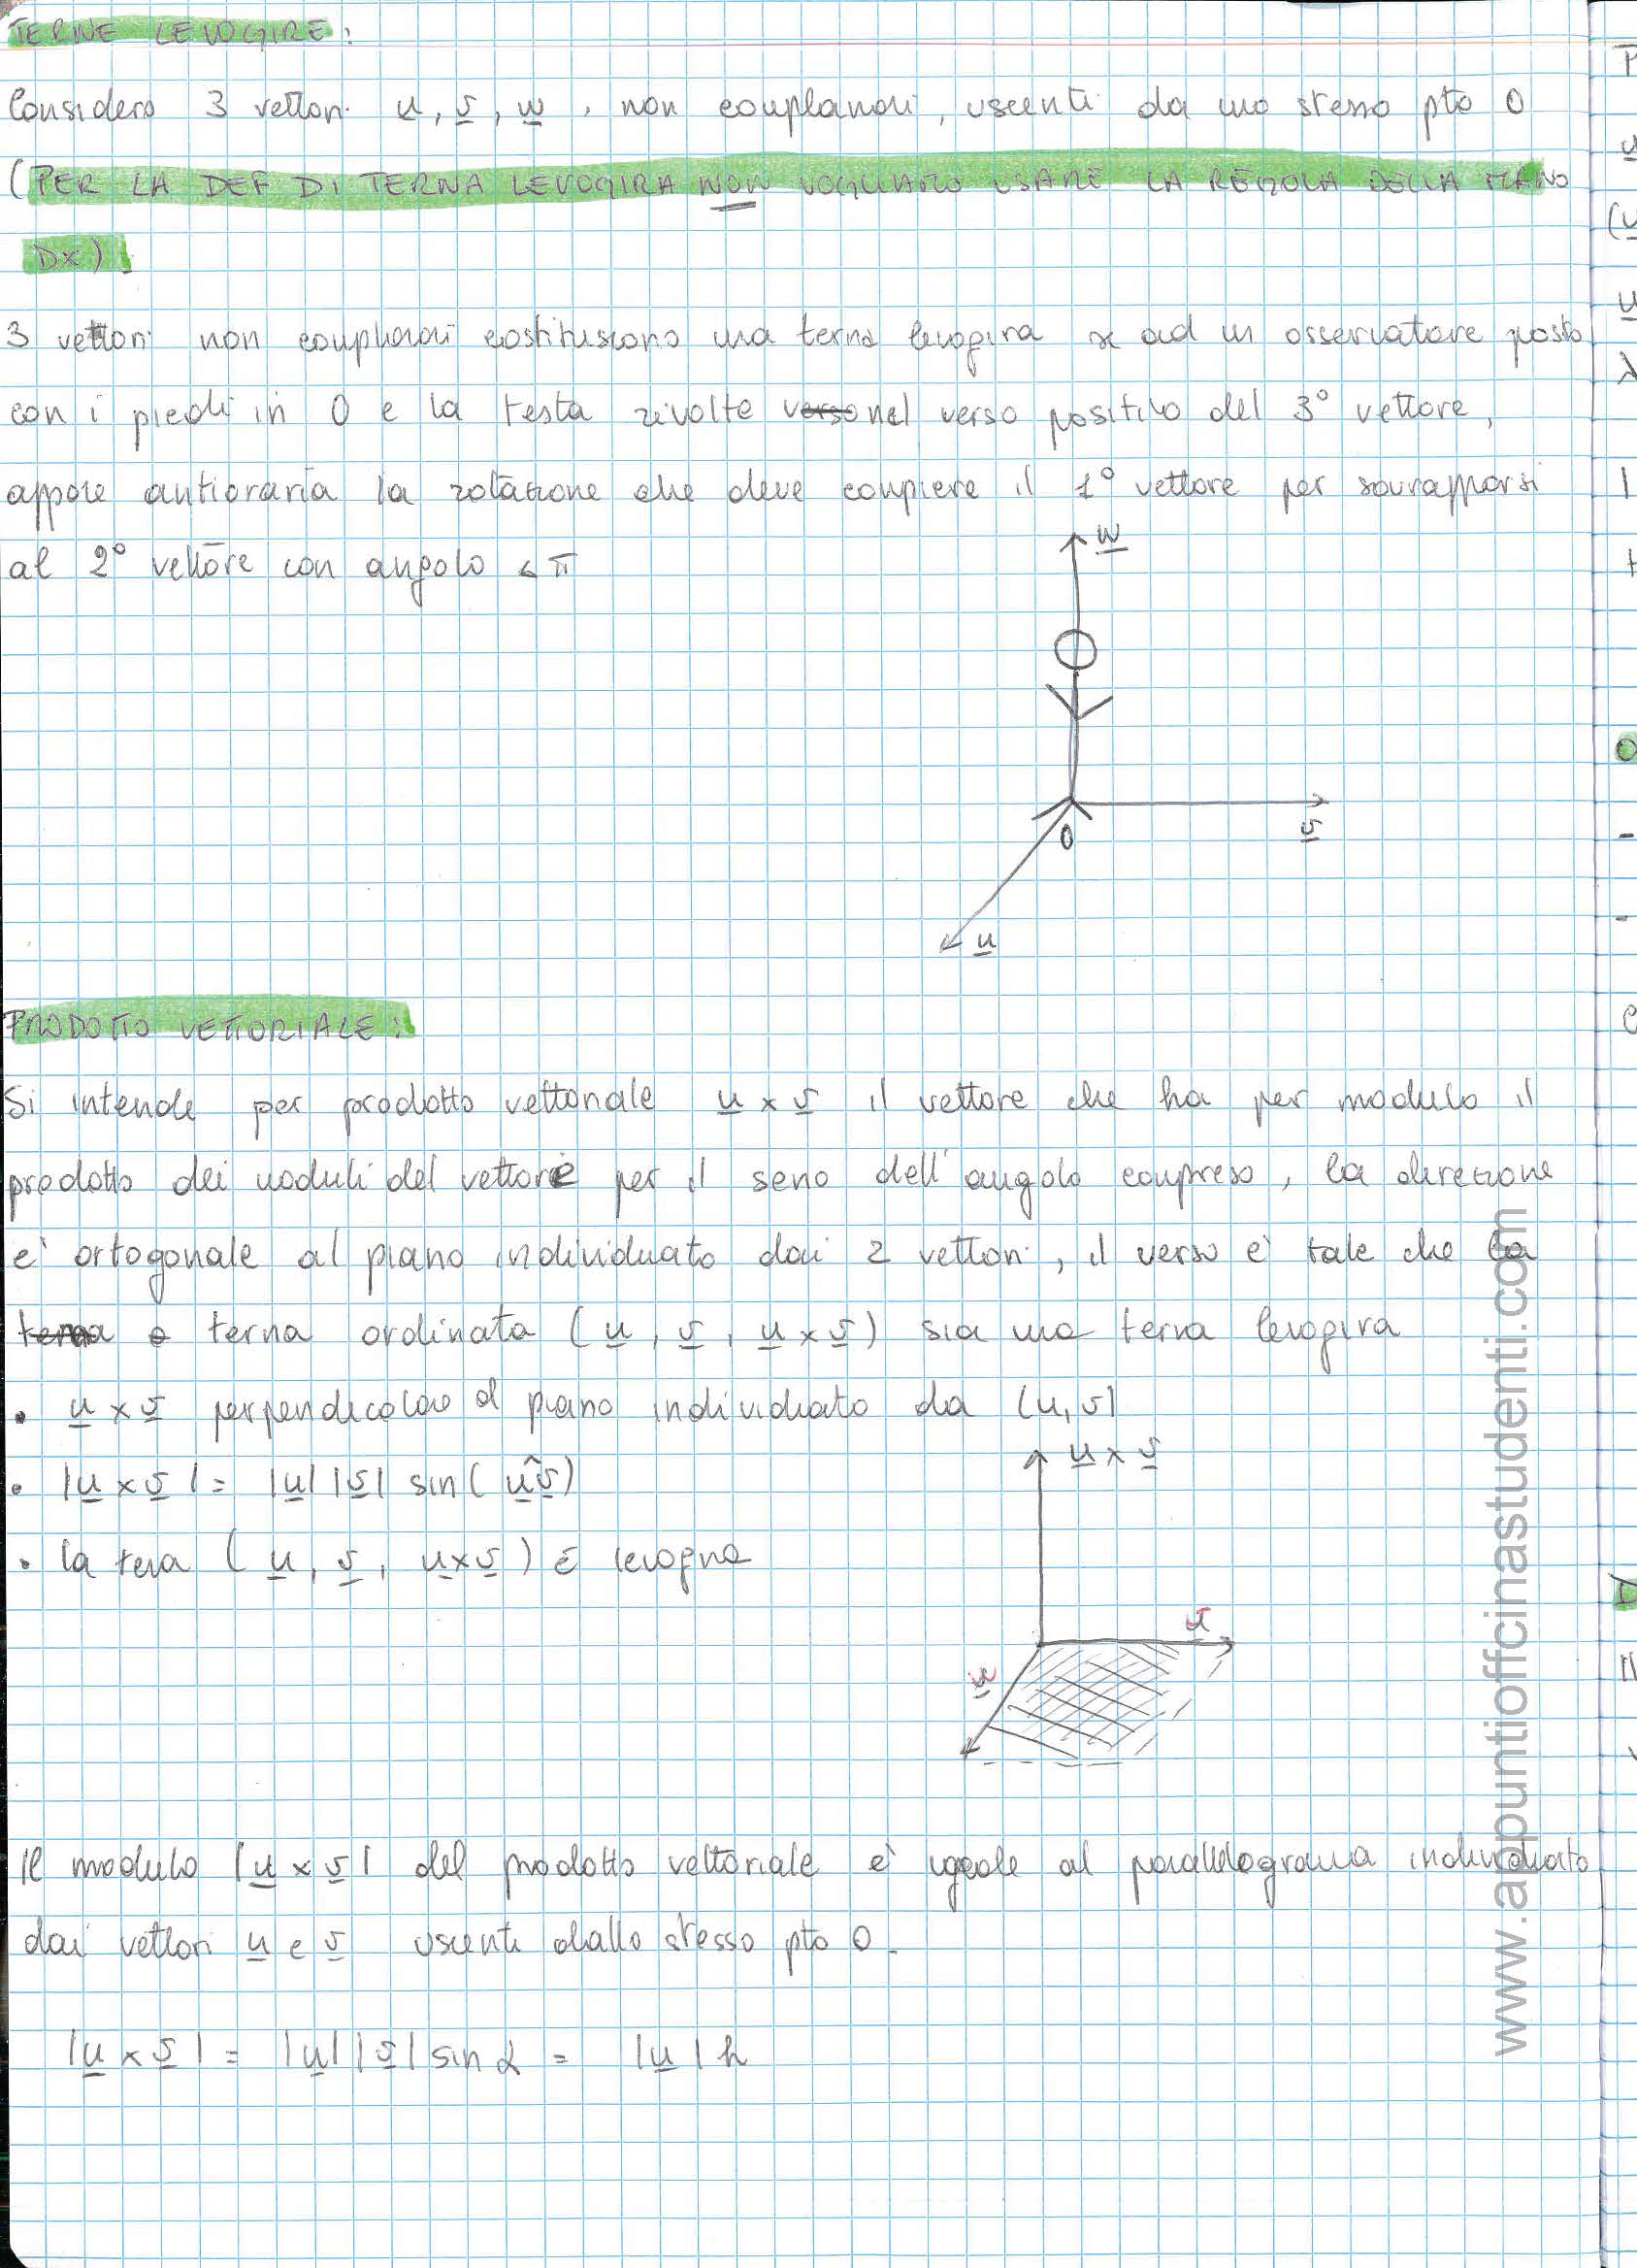 TERNE LEVOGIRE:
Considero 3 vettori u, v, w, non complanari, uscenti da uno stesso pto O
(PER LA DEF DI TERNA LEVOGIRA NON VOGLIAMO USARE LA REGOLA DELLA MANO
DX).
3 vettori non complanari costituiscono una terna levogira se ad un osservatore posto
con i piedi in O e la testa rivolte verso nel verso positivo del 3° vettore,
appare antioraria la rotazione che deve compiere il 1° vettore per sovrapporsi
al 2° vettore con angolo < π
w
O
v
u
PRODOTTO VETTORIALE:
Si intende per prodotto vettoriale u × v il vettore che ha per modulo il
prodotto dei moduli del vettore per il seno dell'angolo compreso, la direzione
e' ortogonale al piano individuato dai 2 vettori, il verso e' tale che la
terna e terna ordinata (u, v, u × v) sia una terna levogira
• u × v perpendicolare al piano individuato da (u, v)
u × v
• |u × v| = |u| |v| sin(u^v)
• la terna (u, v, u×v) è levogira
v
u
Il modulo |u × v| del prodotto vettoriale e' uguale al parallelogramma individuato
dai vettori u e v uscenti dallo stesso pto O.
|u × v| = |u| |v| sin α = |u| h
www.appuntioffcinastudenti.com